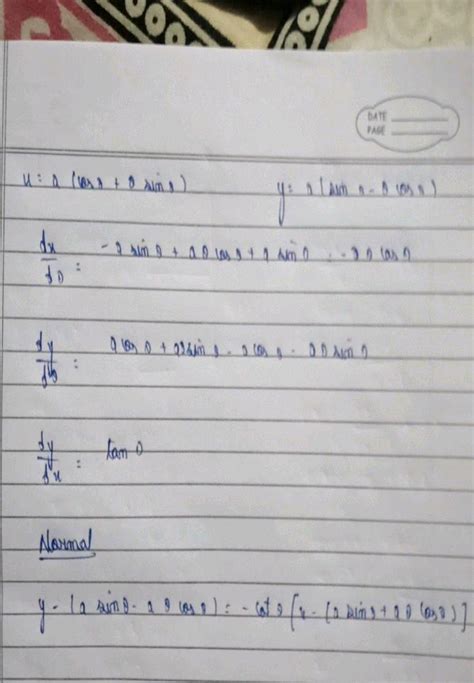 DATE
PAGE
x = a (cos θ + θ sin θ) y = a (sin θ - θ cos θ)
dx/dθ = - a sin θ + a θ cos θ + a sin θ = - a θ cos θ
dy/dθ = a cos θ + aθ sin θ - a cos θ - a θ sin θ
dy/dx = tan θ
Normal
y - (a sin θ - a θ cos θ) = - cot θ [x - (a sin θ + a θ cos θ)]